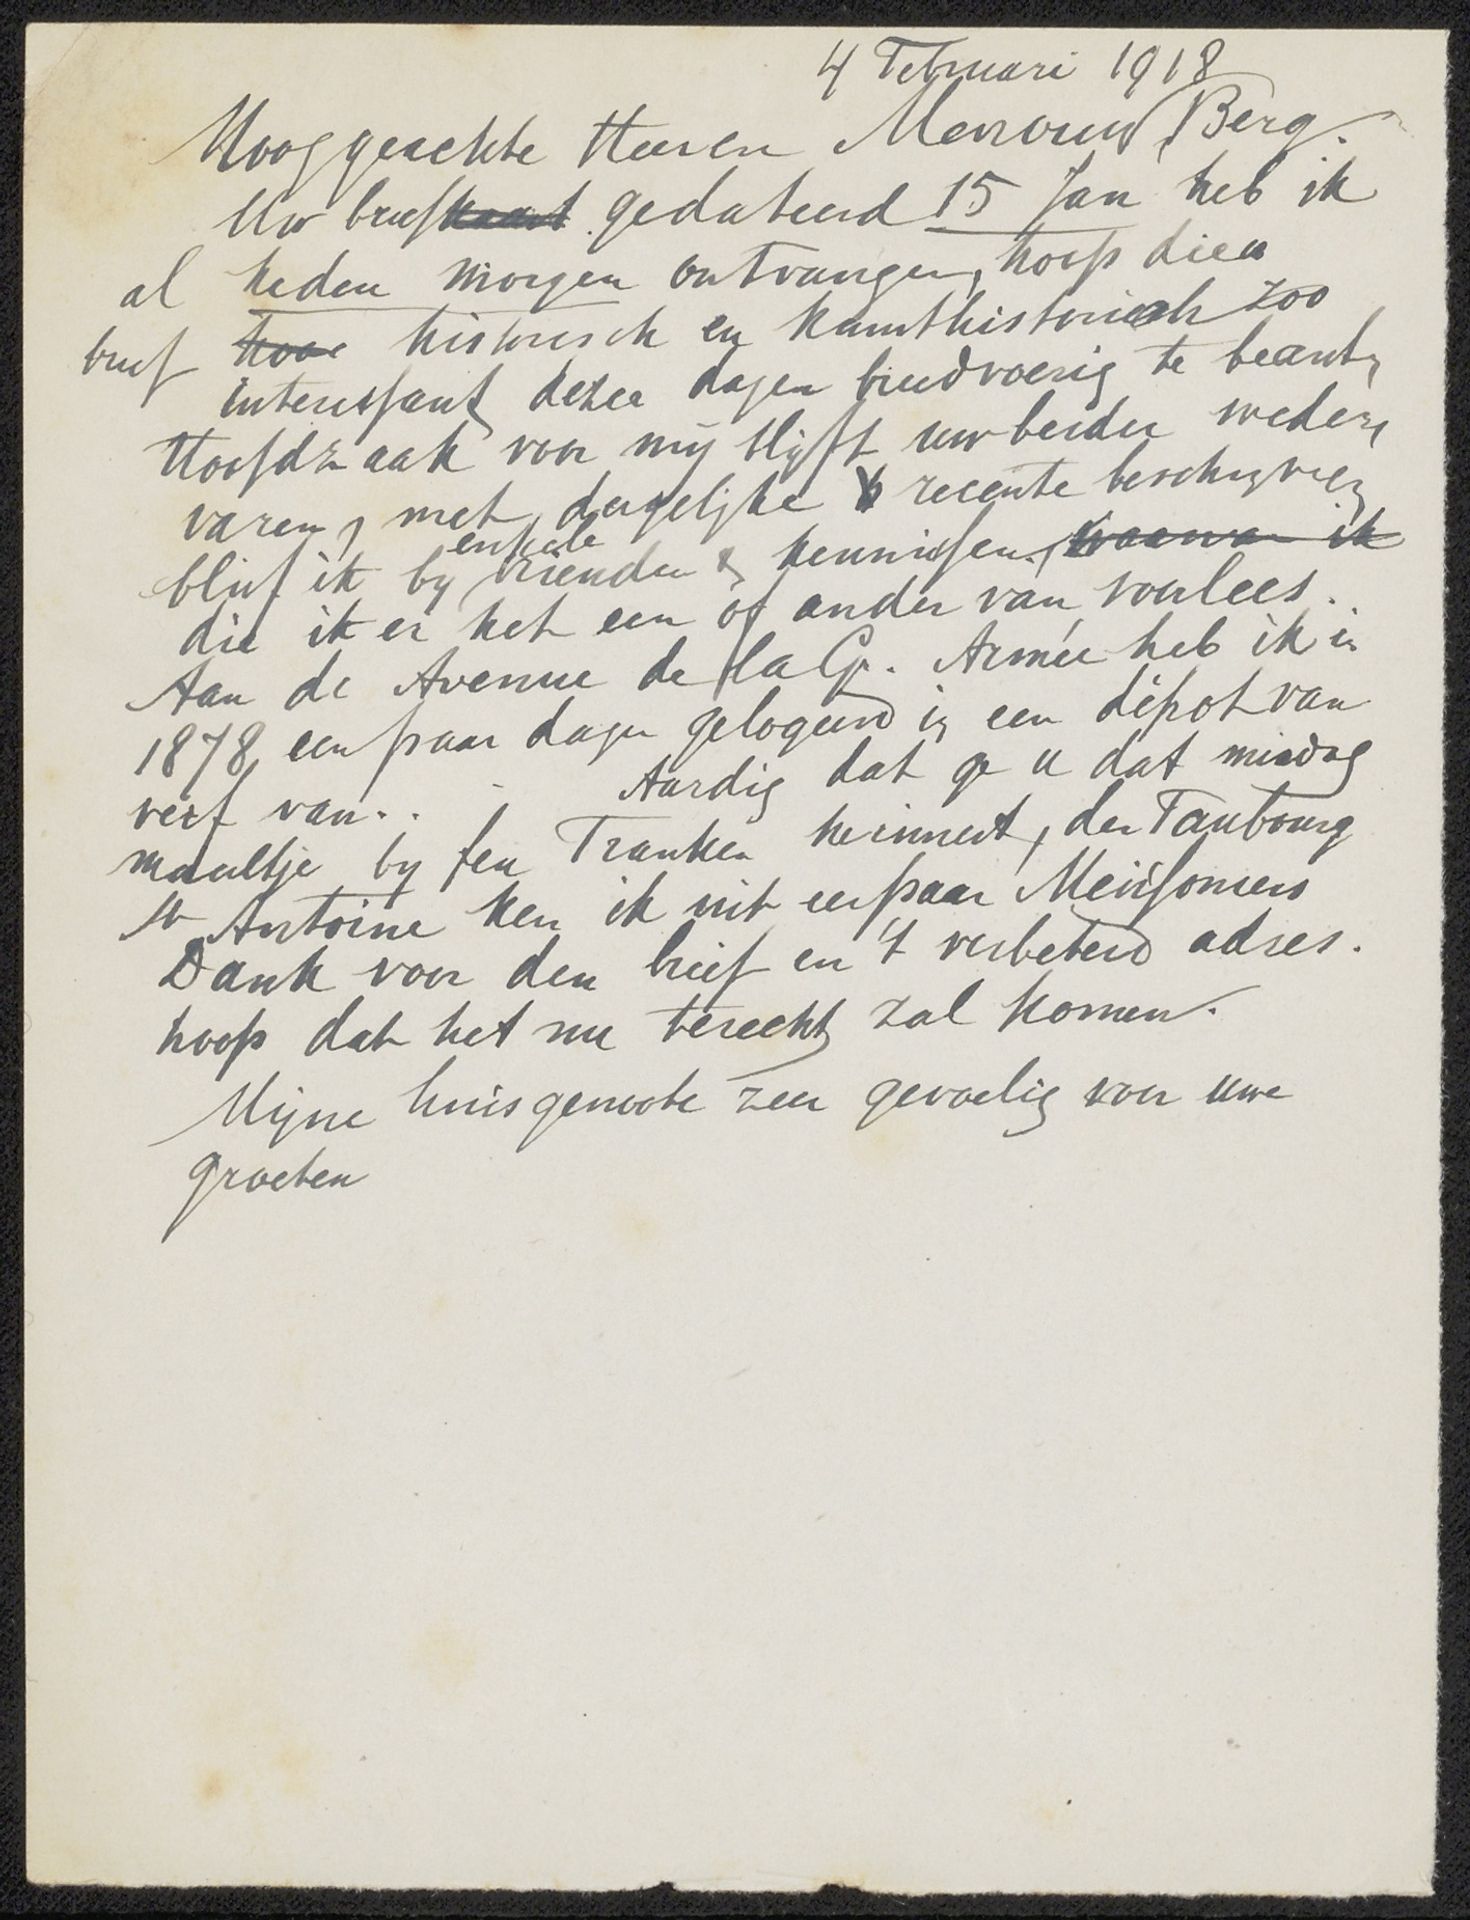 4 Februari 1918
Hooggeachte Heer en Mevrouw Berg.
Uw briefkaart gedateerd 15 Jan heb ik
al heden morgen ontvangen, hoop dien
brief hoor historisch en kunsthistorisch zoo
interessant dezer dagen breedvoerig te beantw
Hoofdzaak voor mij blijft uw beider weder
varen, met dergelijke recente beschrijving
blief ik by enkele vrienden & kennissen, waarvan ik
die ik er het een of ander van voorlees.
Aan de Avenue de la Gr. Armée heb ik in
1878 een paar dagen gelogeerd in een dépot van
verf van . . Aardig dat ge u dat middag
maaltje by feu Franken herinnert, den Faubourg
St Antoine ken ik uit een paar Meissoniers
Dank voor den brief en 't verbeterd adres.
hoop dat het nu terecht zal komen.
Mijne huisgenoote zeer gevoelig voor uwe
groeten